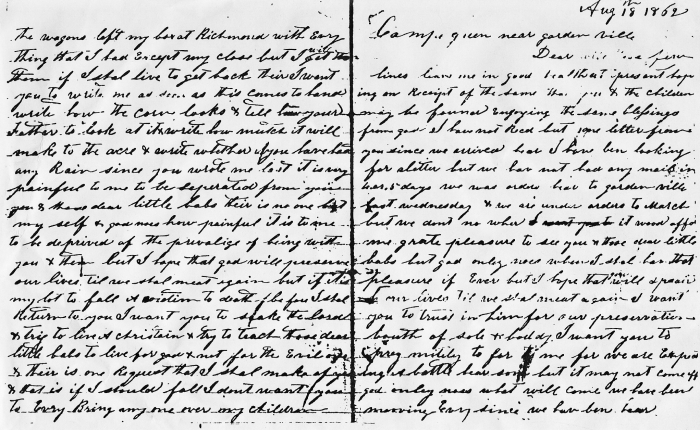 Aug 18th 1862
Camp. quen near garden vill
Dear few
lines leavs me in good healthat present hop
ing on Receipt of the same that you & the children
may be found Enjoying the same blessings
from god I hav not Recd but one letter from
you since we arrived hear I hav ben looking
for aletter but we hav not had any mail in
days we was orderd hear to garden vill
last wednesday & we air under orders to March
but we dont no wher it wood afford
me grate pleasure to see you & those dear little
babs but god only noes when I shal hav that
pleasure if Ever but I hope that he will spair
our lives til we shal meat again I want
you to trust in him for our preservation
bouth of sole & boddy I want you to
pray mitily to for me for we are Expect
ing a battle hear soon but it may not come off
god only noes what will come we have ben
mooving Evry since we hav ben hear
the wagons left my box at Richmond with Evry
thing that I had Except my close but I will get
them if I shal live to get back their I want
you to write me as soon as this comes to hand
write how the corn looks & tell your
Father to look at it & write how mutch it will
make to the acre & write whether you have had
any Rain since you wrote me last it is very
painful to me to be seperated from you
you & those dear little babs their is no one but
my self & god noes how painful it is to me
to be deprived of the privalige of being with
you & them but I hope that god will preserve
our lives til we shal meat again but if it is
my lot to fall A victim to death before I shal
Return to you I want you to seake the lord
& trie to live A christain & try to teach those dear
little babs to live for god & not for the Evil one
& their is one Request that I shal make of you
& that is if I should fall I dont want you
to Evry Bring any one over my children